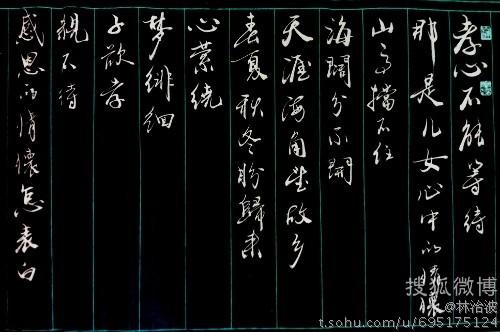 孝心不能等待
那是儿女心中的情怀
山高挡不住
海阔分不开
天涯海角望故乡
春夏秋冬盼归来
心萦绕
梦徘徊
子欲孝
亲不待
感恩的情怀怎表白
搜狐微博
@林治波
t.sohu.com/u/695175124